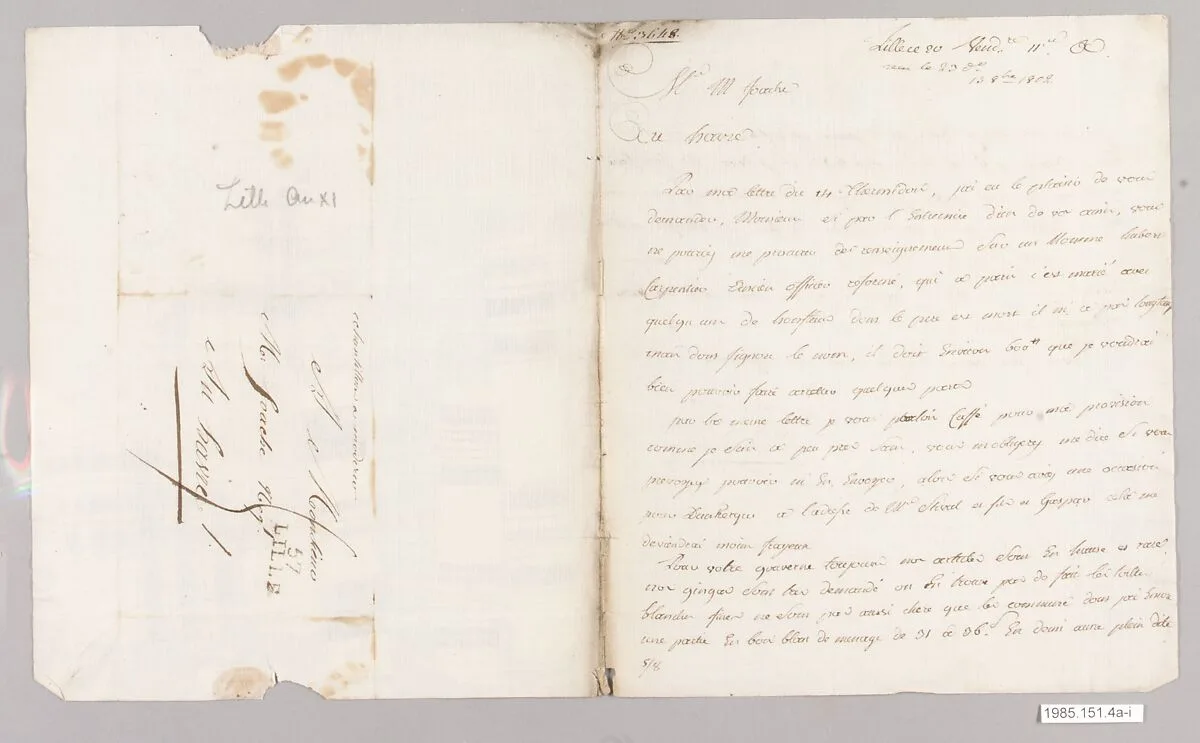 Lille An XI
échantillons
A
Mr foache Negt
Au havre /.
59
LILLE
No 3448.
Lille ce 20 Vend.re 11.e
recu le 23 do
15 8bre 1802
Mr M foache
Au havre
Par ma lettre du 14 j'ai eu le plaisir de vous
demander, Monsieur si par l'Entremise d'un de vos amis, vous
ne pouriez me procurer des renseignemens sur un Nommé
Carpentier Ancien officier reformé, qui a paris c'est marié avec
quelqu'un de honfleur dont le pere est mort il n'i a pas longtems
mais dont j'ignore le nom, il doit Environ 600 que je voudrai
bien pouvoir faire quelque part
par la meme lettre je vous Caffé pour ma provision
comme je suis a peu près sans, vous m'obligerez me dire si vous
prevoyez pouvoir m'En Envoyer, alors si vous avez une occasion
pour Dunkerque a l'adresse de Mrs et fils et Gaspar cela me
deviendrai moin frayeux
Pour votre gouverne toujours nos articles sont En hausse et rare
nos gingas sont tres demandé on En trouve pas de fait les toilles
blanches fines ne sont pas aussi chere que les communes dont j'ai Envoyé
une partie En bon blan de menage de 31 a 36 s En demi aune plein
5/8
1985.151.4a-i